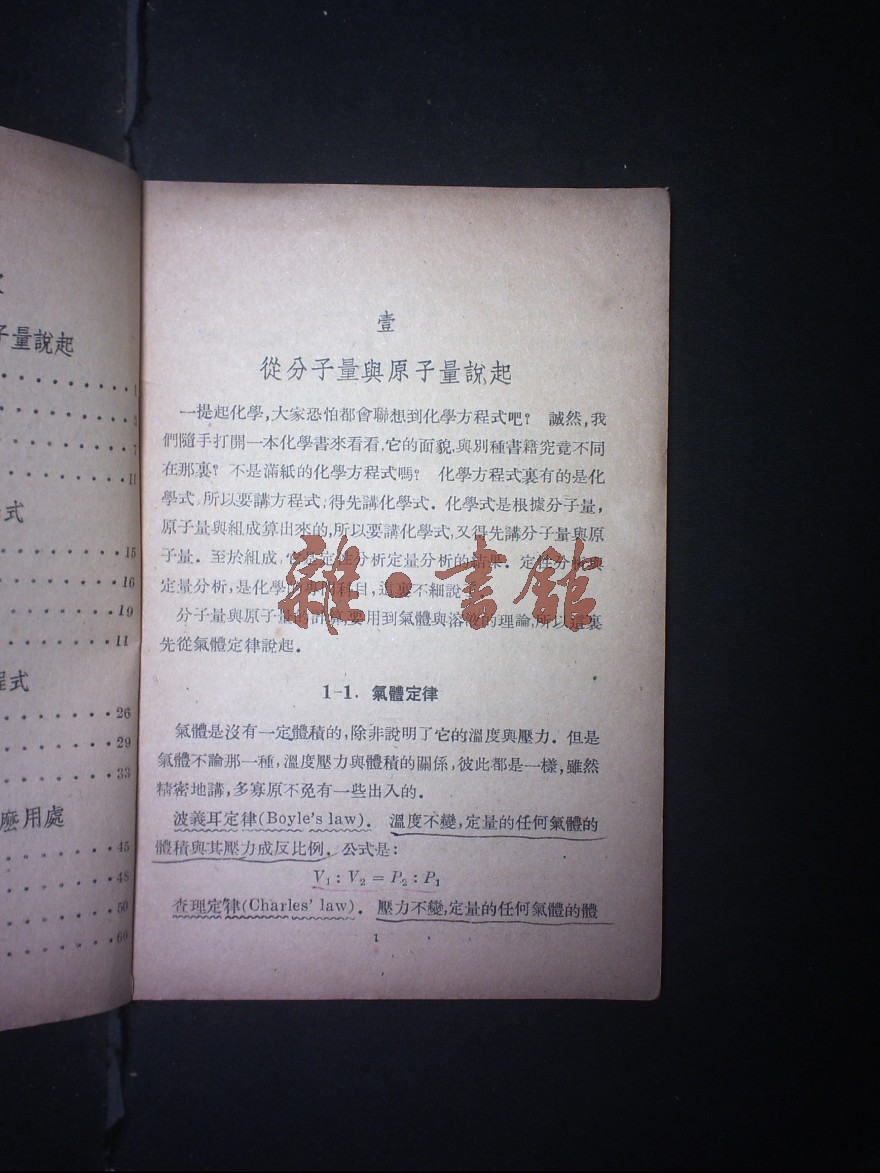 子量說起
1
3
7
11
式
15
16
19
11
程式
26
29
33
麽用處
45
48
50
60
壹
從分子量與原子量說起
一提起化學,大家恐怕都會聯想到化學方程式吧? 誠然,我
們隨手打開一本化學書來看看,它的面貌,與別種書籍究竟不同
在那裏? 不是滿紙的化學方程式嗎? 化學方程式裏有的是化
學式,所以要講方程式,得先講化學式. 化學式是根據分子量,
原子量與組成算出來的,所以要講化學式,又得先講分子量與原
子量. 至於組成,它是定性分析定量分析的結果. 定性分析與
定量分析,是化學的專門科目,這裏不細說了.
分子量與原子量的計算,要用到氣體與溶液的理論,所以這裏
先從氣體定律說起.
1-1. 氣體定律
氣體是沒有一定體積的,除非說明了它的溫度與壓力. 但是
氣體不論那一種,溫度壓力與體積的關係,彼此都是一樣,雖然
精密地講,多寡原不免有一些出入的.
波義耳定律(Boyle's law). 溫度不變,定量的任何氣體的
體積與其壓力成反比例. 公式是:
V₁ : V₂ = P₂ : P₁
查理定律(Charles' law). 壓力不變,定量的任何氣體的體
1
雜·書館